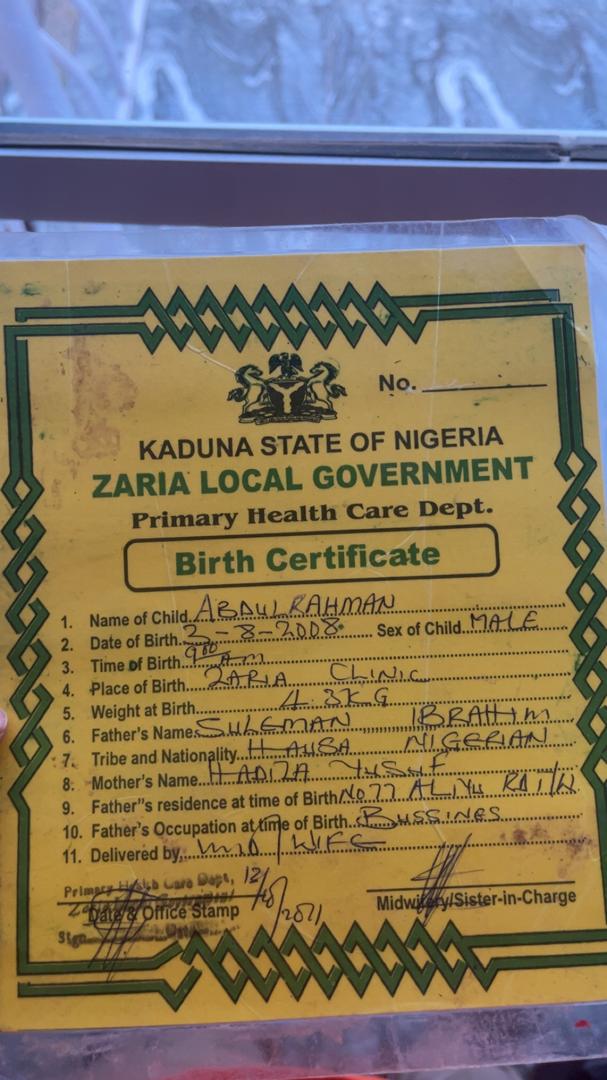 No.
KADUNA STATE OF NIGERIA
ZARIA LOCAL GOVERNMENT
Primary Health Care Dept.
Birth Certificate
1. Name of Child ABDULRAHMAN
2. Date of Birth 3-8-2008 Sex of Child MALE
3. Time of Birth 9:00 am
4. Place of Birth ZARIA CLINIC
5. Weight at Birth 4.3KG
6. Father's Name SULEMAN IBRAHIM
7. Tribe and Nationality HAUSA NIGERIAN
8. Mother's Name HADIZA YUSUF
9. Father"s residence at time of Birth NO 77 ALIYU
10. Father's Occupation at time of Birth BUSSINES
11. Delivered by MID/WIFE
Primary Health Care Dept,
12/10/2021
Date & Office Stamp Midwifery/Sister-in-Charge
Sign